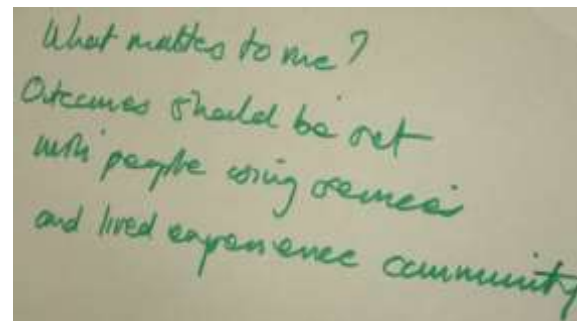 What matters to me?
Outcomes should be set
with people using services
and lived experience community